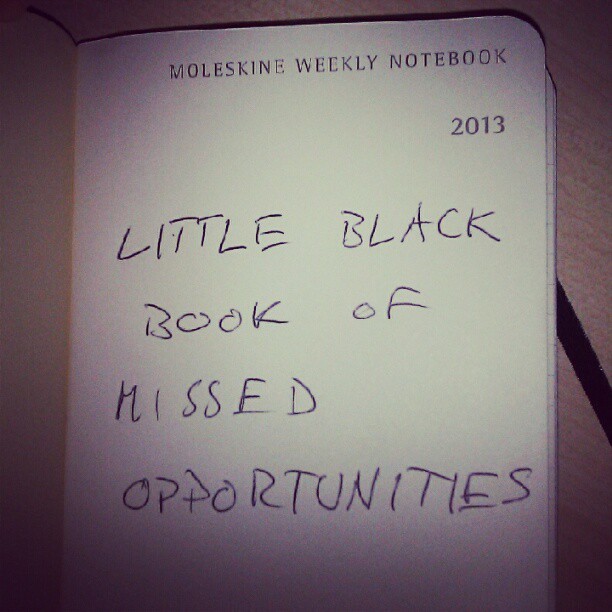 MOLESKINE WEEKLY NOTEBOOK
2013
LITTLE BLACK
BOOK OF
MISSED
OPPORTUNITIES